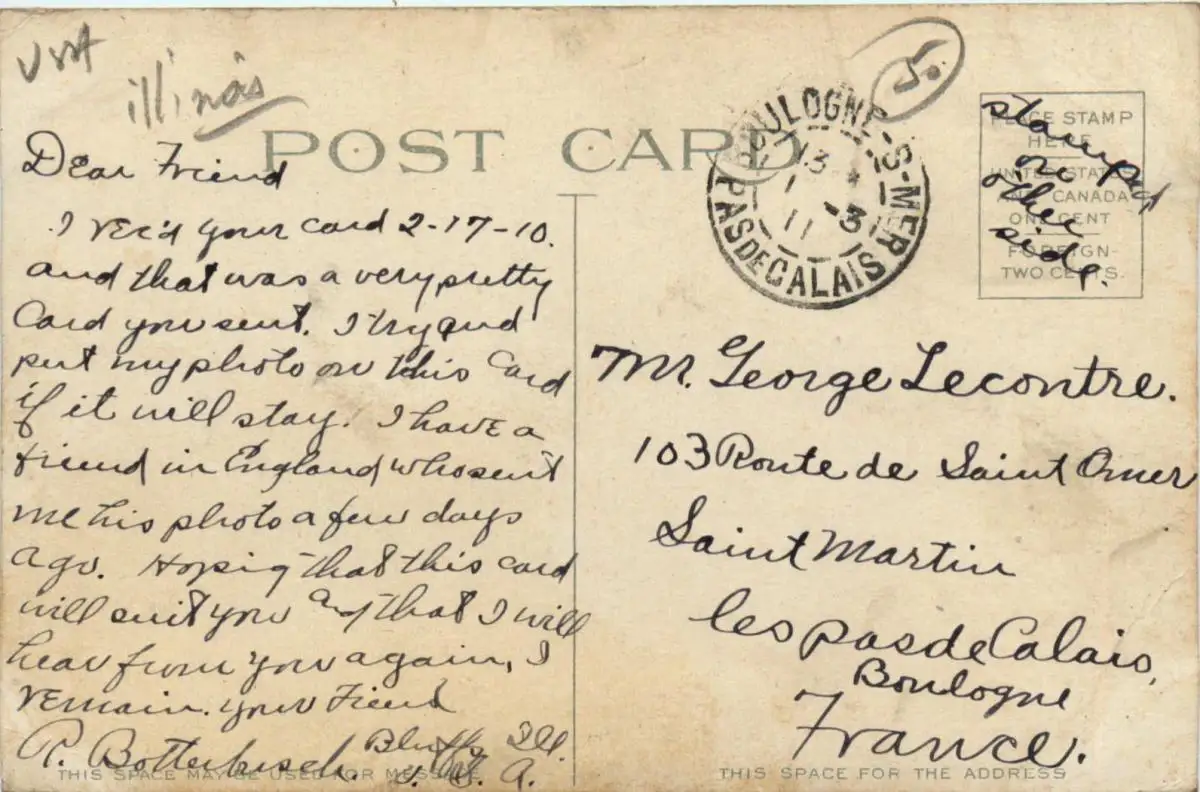 USA
Illinois
5.
POST CARD
BOULOGNE-S-MER
13
11 -3
PAS DE CALAIS
PLACE STAMP
HERE
UNITED STATES
AND CANADA
ONE CENT
FOREIGN-
TWO CENTS.
stamped
on
other
side.
Dear Friend
I rec'd your card 2-17-10.
and that was a very pretty
Card you sent. I try and
put my photo on this Card
if it will stay. I have a
friend in England who sent
me his photo a few days
ago. Hoping that this card
will suit you and that I will
hear from you again, I
remain. your Friend
R. Botterbusch. Bluffs Ill.
U. S. A.
THIS SPACE MAY BE USED FOR MESSAGE
Mr. George Lecontre.
103 Route de Saint Omer
Saint Martin
les pas de Calais,
Boulogne
France.
THIS SPACE FOR THE ADDRESS